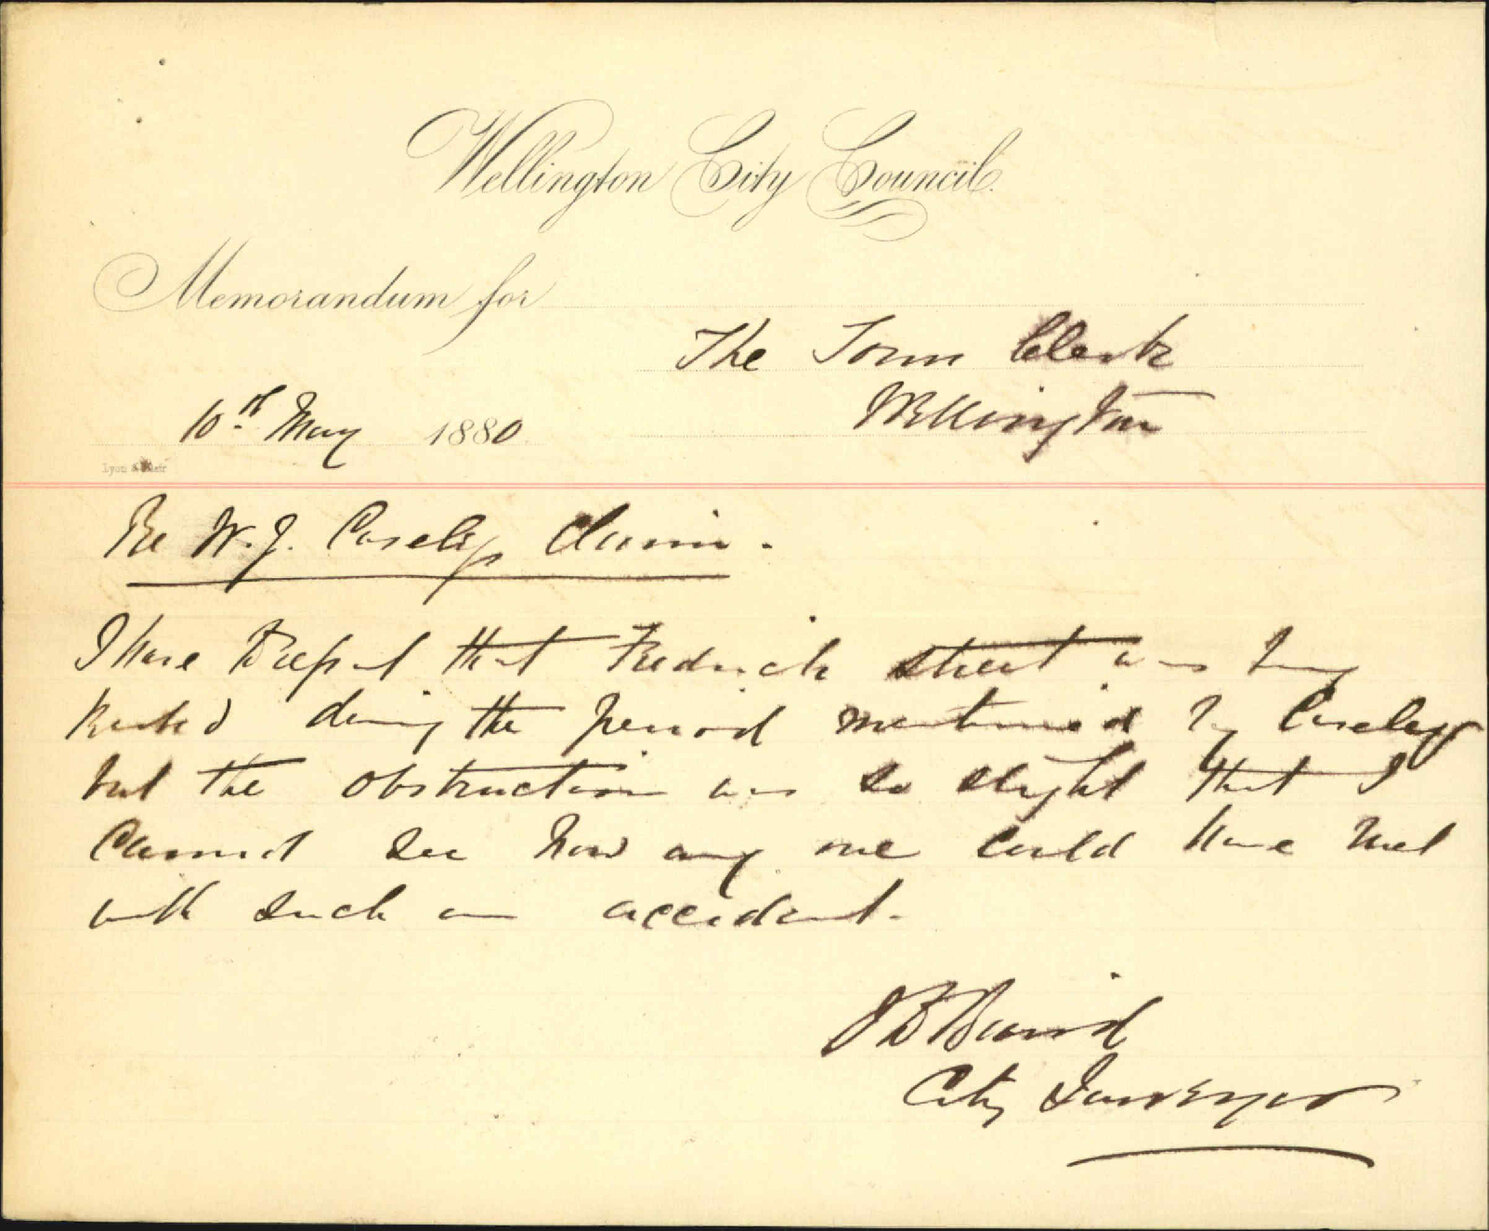 Wellington City Council.
Memorandum for
The Town Clerk
Wellington
10th May 1880
Lyon & Blair
Re W. J. Caseley's Claim.
I have to report that Fredrick street was being
during the period mentioned by Caseley
but the obstruction was so slight that I
cannot see how any one could have met
with such an accident.
J B Baird
City Surveyor